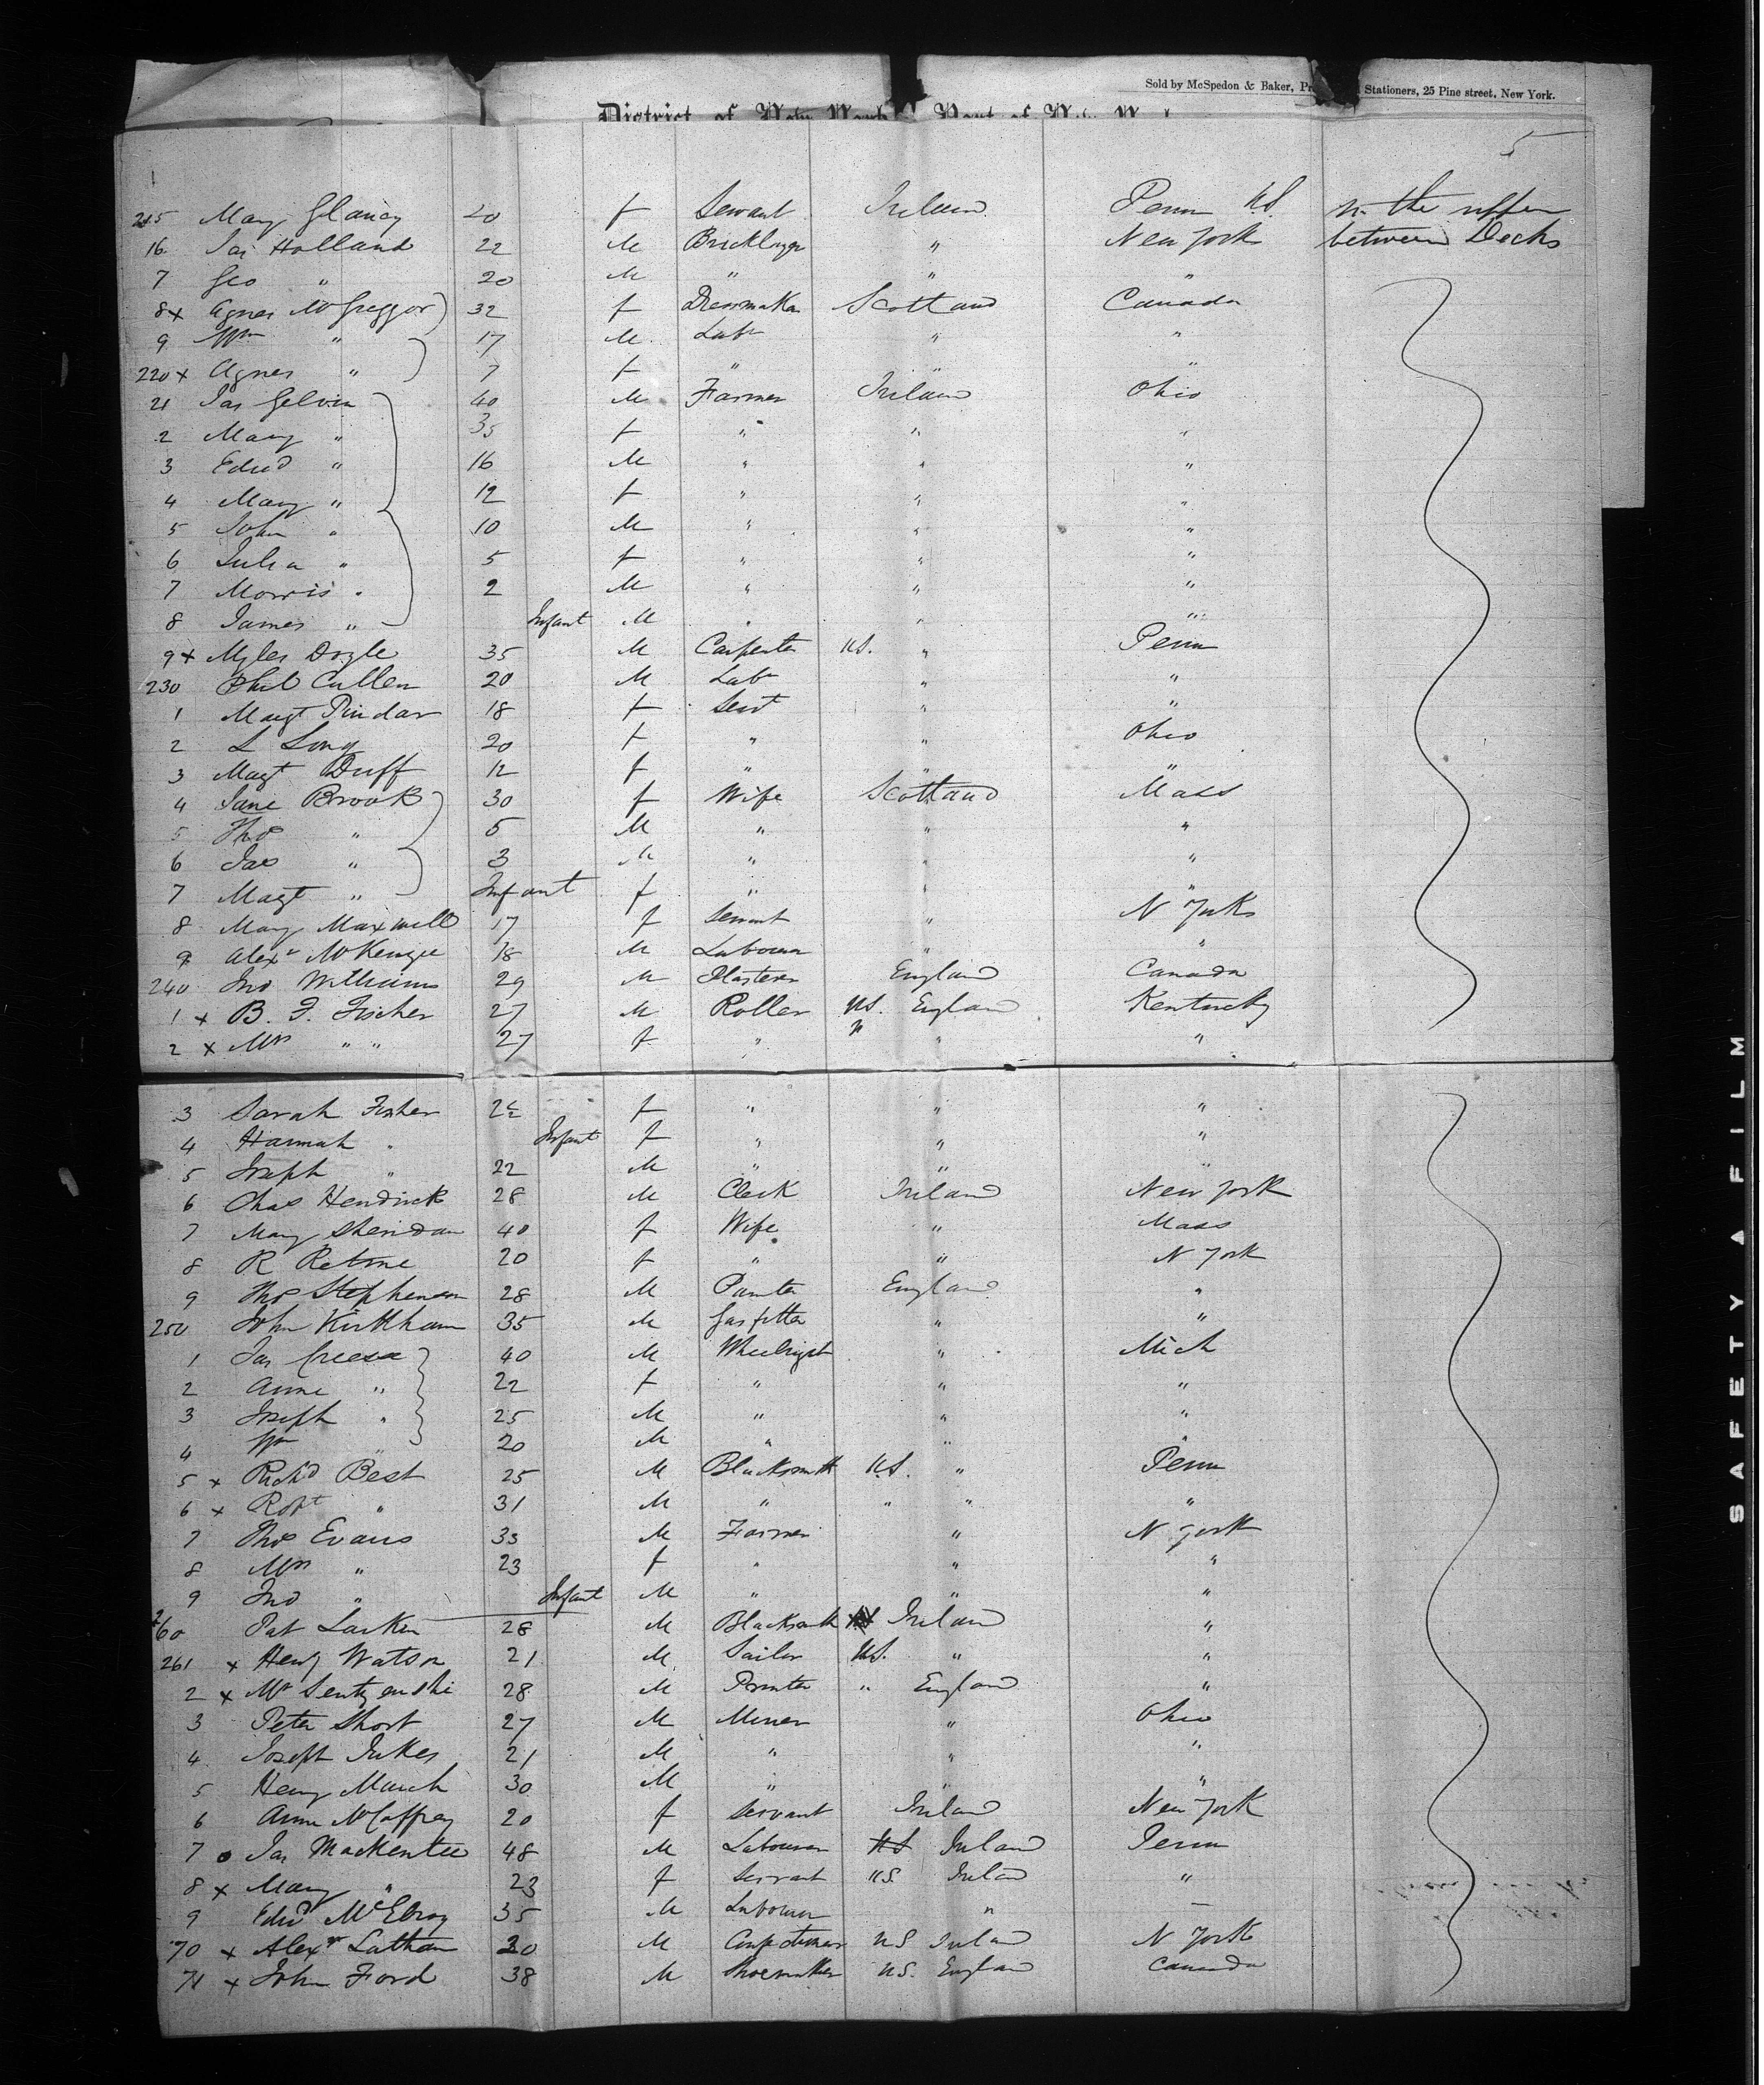 Sold by McSpedon & Baker, Pr Stationers, 25 Pine street, New York.
District of New York Port of New York
5
215 Mary Glancy 20 f Servant Ireland Penn US. in the upper
16 Jas Holland 22 M Bricklayer " New York between Decks
7 Geo " 20 M " " "
8 x Agnes McGreggor 32 f Dressmaker Scotland Canada
9 Wm " 17 M Labr " "
220 x Agnes " 7 f " " "
21 Jas Gelvin 40 M Farmer Ireland Ohio
2 Mary " 35 f " " "
3 Edwd " 16 M " " "
4 Mary " 12 f " " "
5 John " 10 M " " "
6 Julia " 5 f " " "
7 Morris " 2 M " " "
8 James " Infant M " " "
9 x Myles Doyle 35 M Carpenter US. " Penn
230 Phil Cullen 20 M Labr " "
1 Magt Pindar 18 f Servt " "
2 L Long 20 f " " Ohio
3 Magt Duff 12 f " " "
4 Jane Brook 30 f Wife Scotland Mass
5 Thos " 5 M " " "
6 Jas " 3 M " " "
7 Magt " Infant f " " "
8 Mary Maxwell 17 f Servant " N York
9 Alexr McKenzie 18 M Labourer " "
240 Jno Williams 29 M Plasterer England Canada
1 x B. F. Fischer 27 M Roller US. England Kentucky
2 x Mrs " " 27 f " " " "
3 Sarah Fisher f " " "
4 Hannah " Infant f " " "
5 Joseph " 22 M " " "
6 Chas Hendrick 28 M Clerk Ireland New York
7 Mary Sheridan 40 f Wife " Mass
8 R 20 f " " N York
9 Thos Stephenson 28 M Painter England "
250 John Kirkham 35 M Gasfitter " "
1 Jas Creese 40 M Wheelright " Mich
2 Anne " 22 f " " "
3 Joseph " 25 M " " "
4 Wm " 20 M " " "
5 x Richd Best 25 M Blacksmith US. " Penn
6 x Robt " 31 M " " " "
7 Thos Evans 33 M Farmer " N York
8 Mrs " 23 f " " "
9 Jno " Infant M " " "
260 Pat Larkin 28 M Blacksmith Ireland "
261 x Henry Watson 21 M Sailor US. " "
2 x Mr 28 M Printer " England "
3 Peter Short 27 M Miner " Ohio
4 Joseph Jukes 21 M " " "
5 Henry March 30 M " " "
6 Anne McCaffrey 20 f Servant Ireland New York
7 Jas Mackentee 48 M Labourer US Ireland Penn
8 x Mary " 23 f Servant US. Ireland "
9 Edwd McElroy 35 M Labourer " —
70 x Alexr Latham 30 M Confectioner US Ireland N York
71 x John Ford 38 M Shoemaker US. England Canada
SAFETY A FILM